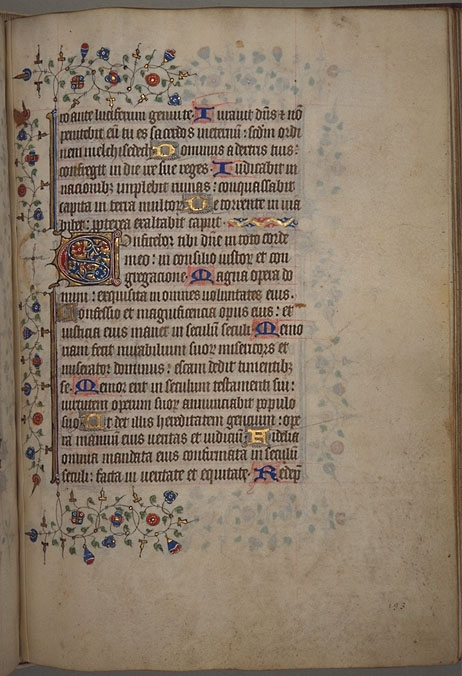 ro ante luciferum genui te. Iuravit dns et no
penitebit eu tu es sacerdos ineternu : scdm ordi
nem melchisedech. Dominus a dextris tuis :
confregit in die ire sue reges. Iudicabit in
nacionib; implebit ruinas : conquassabit
capita in terra multor. De torrente in via
bibet : propterea exaltabit caput
Confitebor tibi dne in toto corde
meo : in consilio iustor et con
gregacione. Magna opera do
mini : exquisita in omnes voluntates eius.
Confessio et magnificencia opus eius : et
iusticia eius manet in seculum seculi. Memo
riam fecit mirabilium suor misericors et
miserator dominus : escam dedit timentib;
se. Memor erit in seculum testamenti sui :
virtutem operum suor annunciabit populo
suo. Ut det illis hereditatem gencium : ope
ra manuum eius veritas et iudicium. Fidelia
omnia mandata eius confirmata in seculum
seculi : facta in veritate et equitate. Redemp